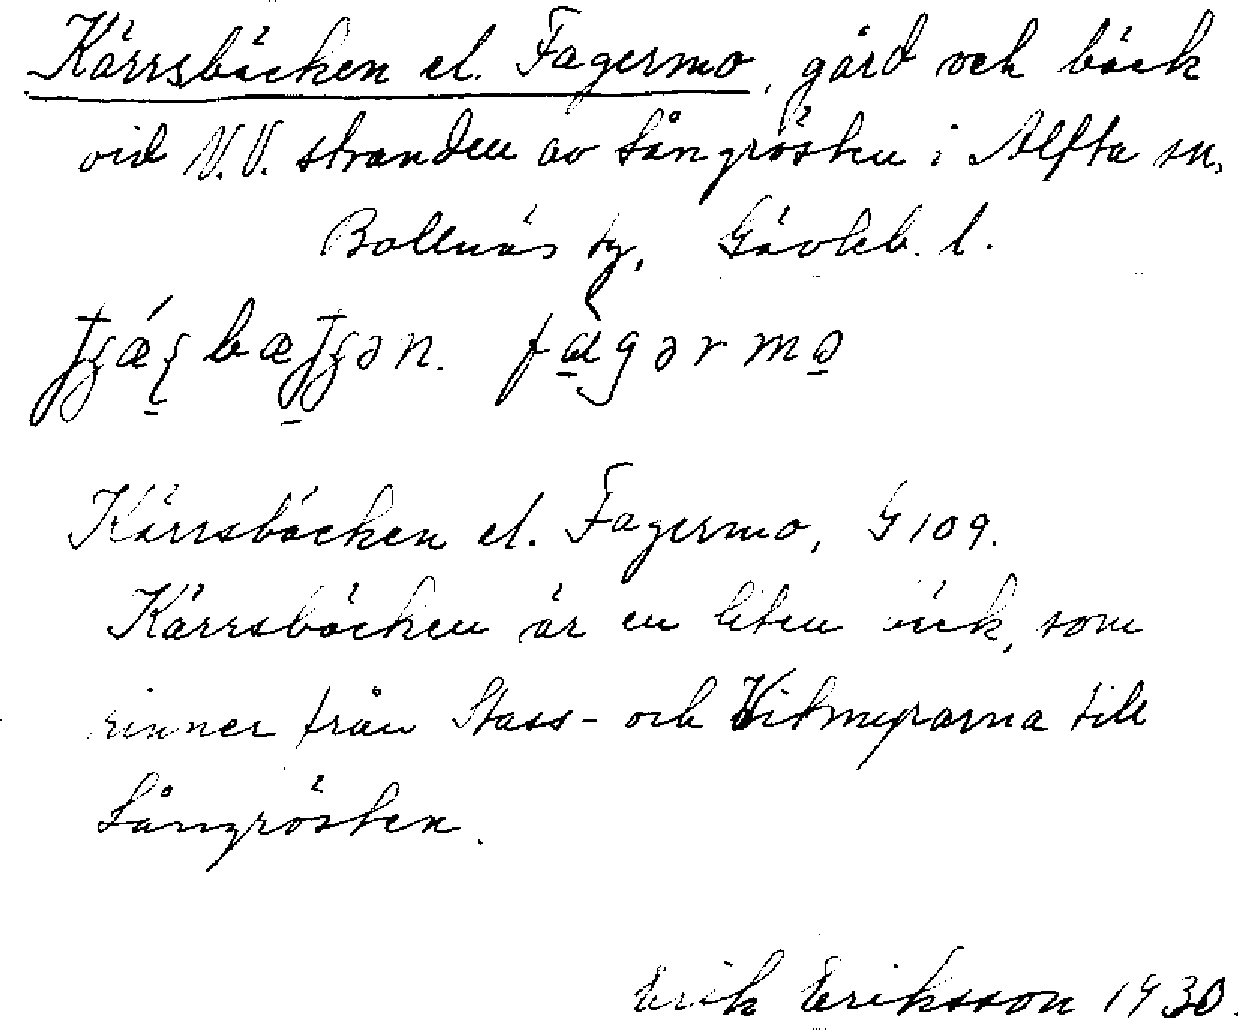 Kärrsbäcken el. Fagermo, gård och bäck
vid N.V. stranden av Långrösten i Alfta sn,
Bollnäs tg, Gävleb. l.
fagərmo
Kärrsbäcken el. Fagermo, G 109.
Kärrsbäcken är en liten bäck, som
rinner från Stass- och Vitmyrarna till
Långrösten.
Erik Eriksson 1930.